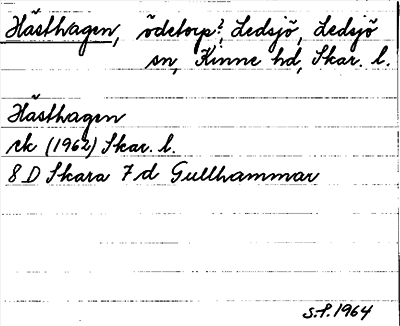 Hästhagen, ödetorp?, Ledsjö, Ledsjö
sn, Kinne hd, Skar. l.
Hästhagen
ek (1962) Skar. l.
8 D Skara 7 d Gullhammar
S.F. 1964